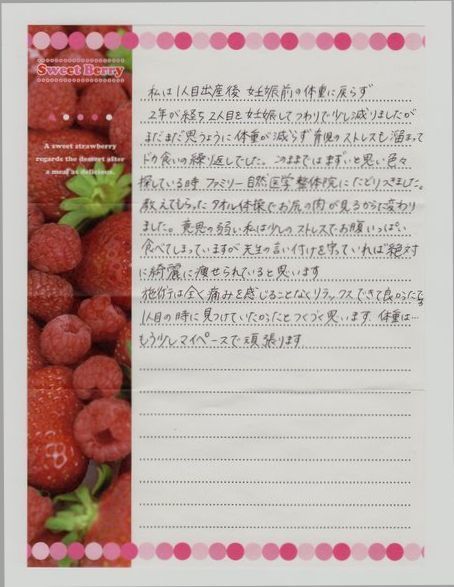 Sweet Berry
A sweet strawberry
regards the dessert after
a meal as delicious.
私は1人目出産後 妊娠前の体重に戻らず
2年が経ち2人目を妊娠してつわりで少し減りましたが
まだまだ思うように体重が減らず 育児のストレスも溜まって
ドカ食いの繰り返しでした。このままではまずいと思い色々
探している時 ファミリー自然医学整体院にたどりつきました。
教えてもらったタオル体操でお尻の肉が見るからに変わり
ました。意思の弱い私は少しのストレスでお腹いっぱい
食べてしまっていますが先生の言い付けを守っていれば絶対
に綺麗に痩せられていると思います
施術は全く痛みを感じることなくリラックスできて良かったです
1人目の時に見つけていたかったとつくづく思います. 体重は…
もう少しマイペースで頑張ります